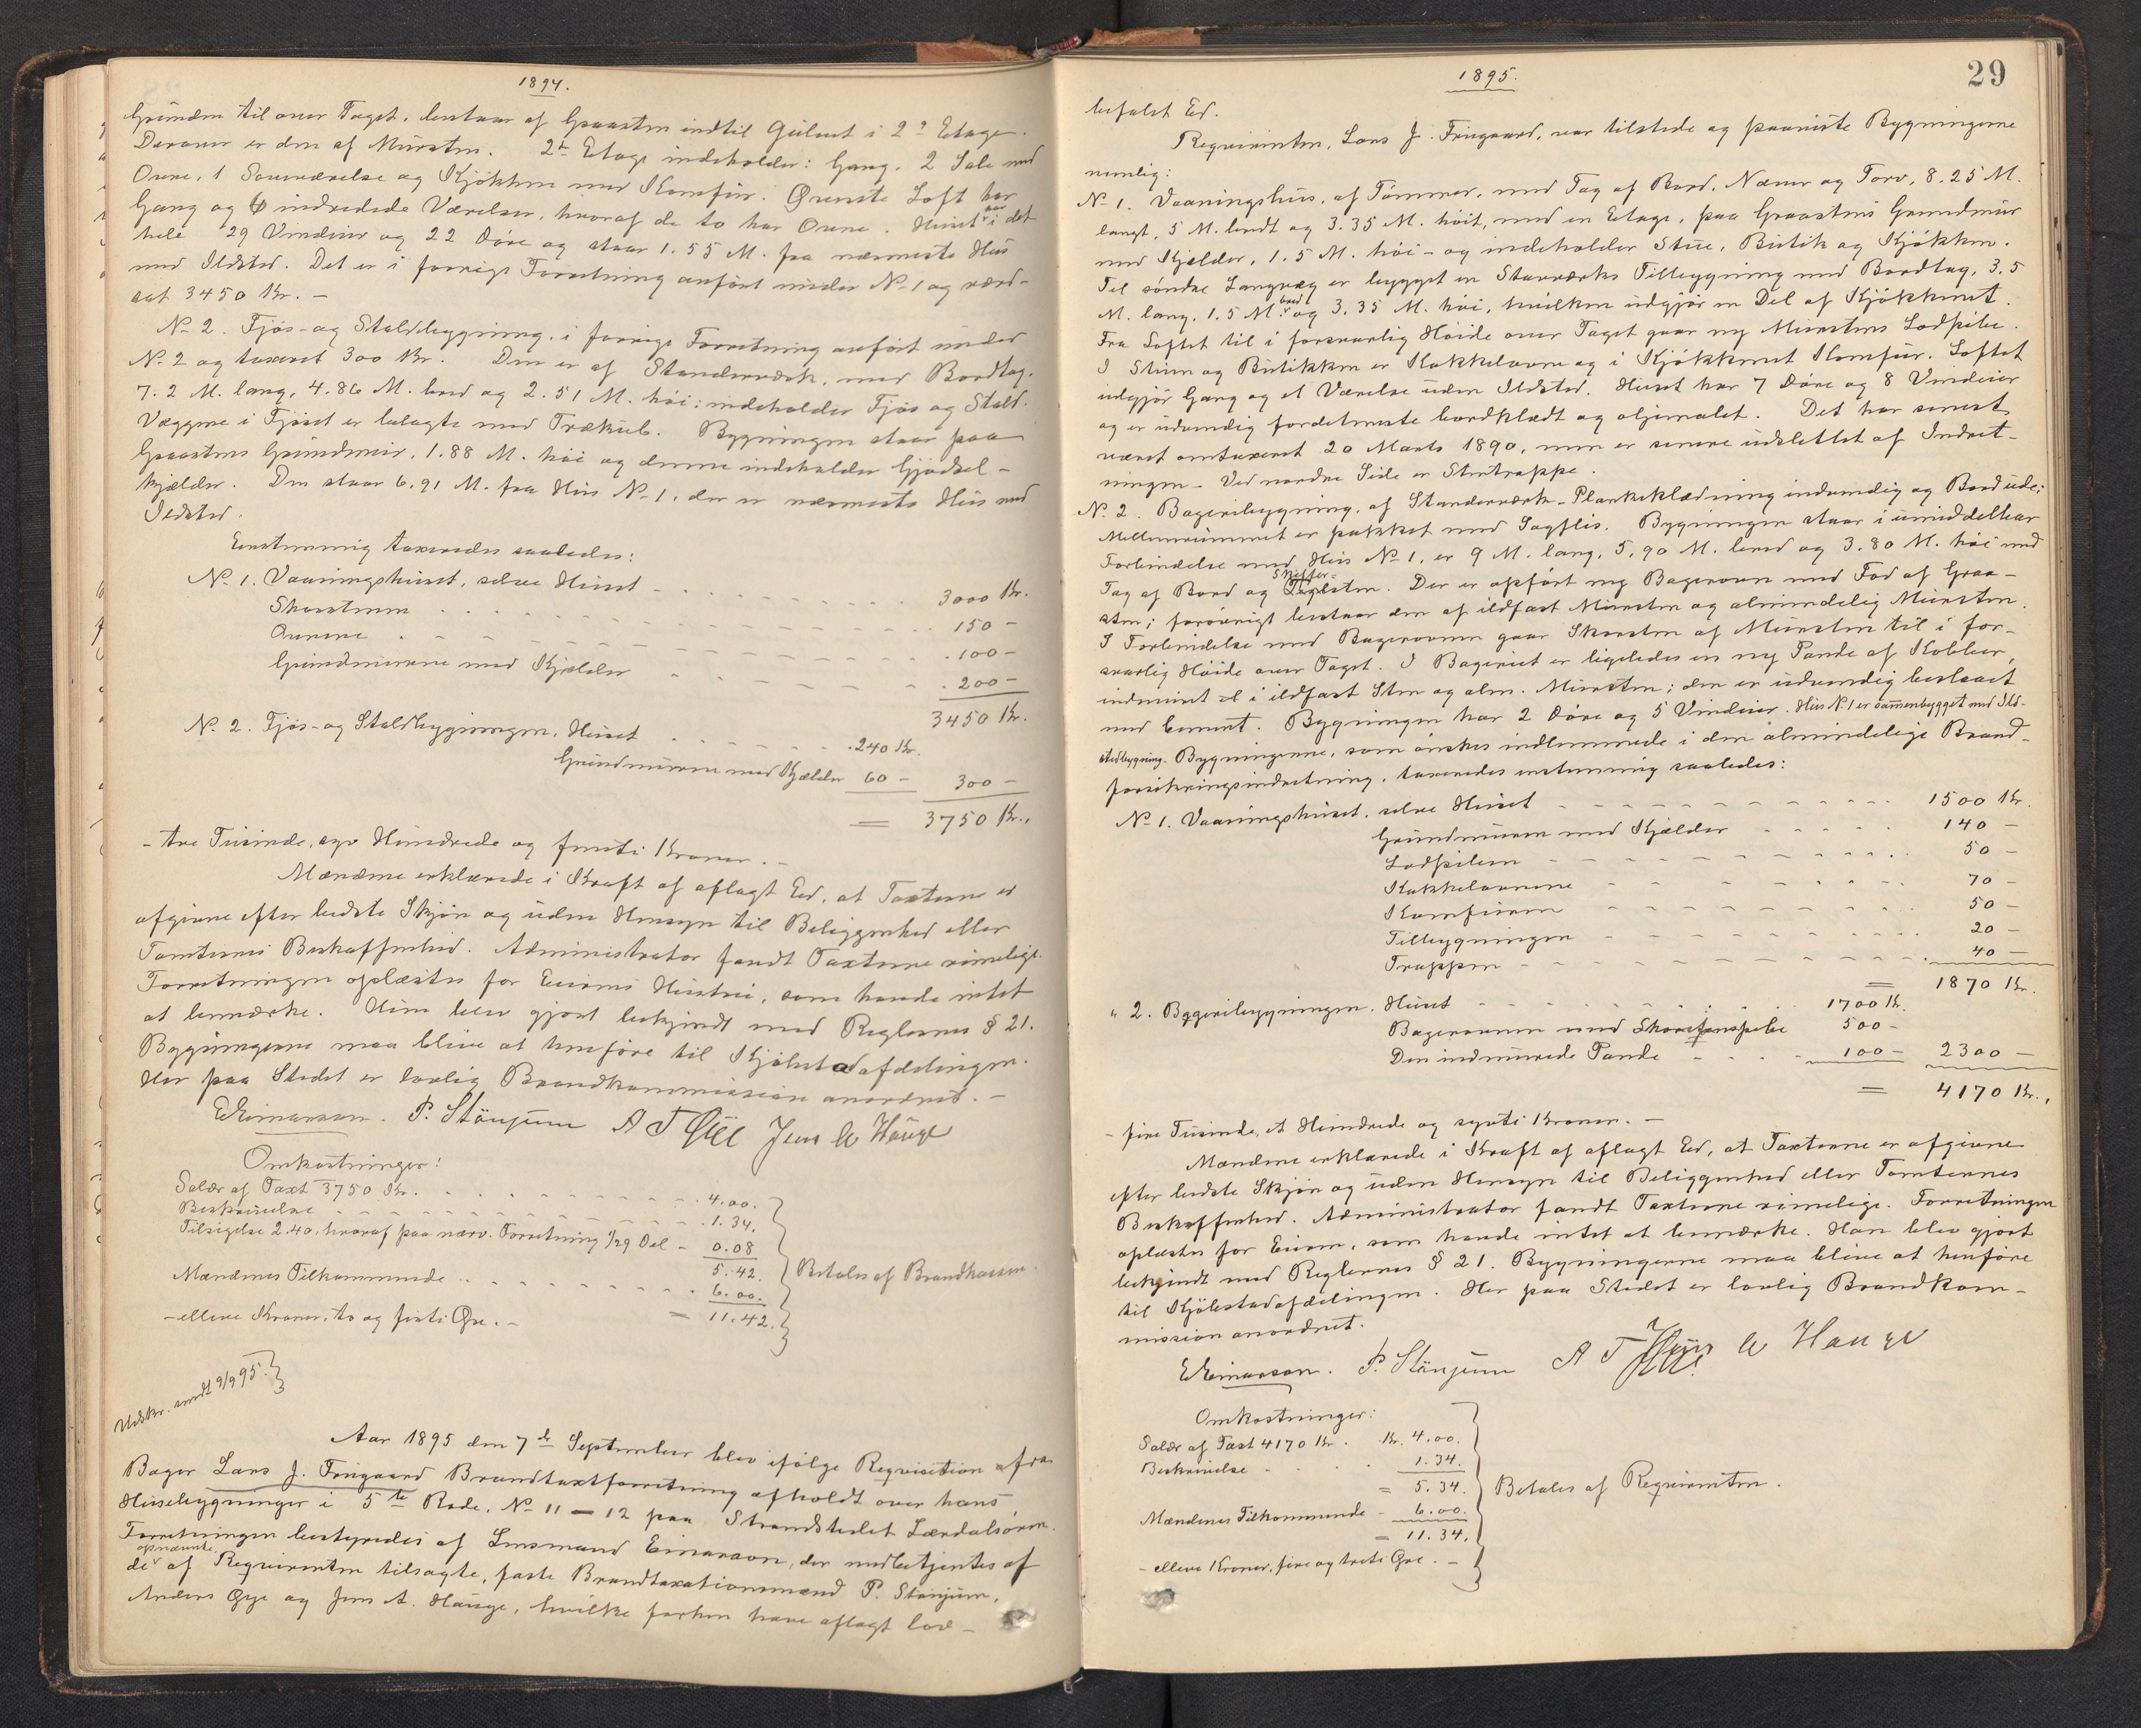 1894.
Grunden til over Taget, bestaar af Graasten indtil Gulvet i 2n Etage.
Derover er den af Mursten. 2den Etage indeholder: Gang, 2 Sale med
Ovne, 1 Soveværelse og Kjøkken med Komfur. Øverste Loft har
Gang og 6 indredede Værelser, hvoraf de to har Ovne. Huset har i det
hele 29 Vinduer og 22 Døre og staar 1.55 M. fra nærmeste Hus
med Ildsted. Det er i forrige Forretning anført under No 1 og værd-
sat 3450 Kr. -
No 2. Fjøs- og Staldbygning, i forrige Forretning anført under
No 2 og taxeret 300 Kr. Den er af Standerværk, med Bordtag,
7.2 M. lang, 4.86 M. bred og 2.51 M. høi; indeholder Fjøs og Stald.
Væggene i Fjøset er belagte med Trækul. Bygningen staar paa
Graastens Grundmur, 1.88 M. høi og denne indeholder Gjødsel-
kjælder. Den staar 6.91 M. fra Hus No 1, der er nærmeste Hus med
Ildsted.
Eenstemmig taxeredes saaledes:
No 1. Vaaningshuset, selve Huset 3000 Kr.
Skorstenen 150 -
Ovnene 100 -
Grundmurene med Kjælder 200 -
3450 Kr.
No 2. Fjøs- og Staldbygningen, Huset 240 Kr.
Grundmuren med Kjælder 60 - 300 -
= 3750 Kr.,
- tre Tusinde, syv Hundrede og femti Kroner. -
Mændene erklærede i Kraft af aflagt Ed, at Taxterne er
afgivne efter bedste Skjøn og uden Hensyn til Beliggenhed eller
Tomternes Beskaffenhed. Administrator fandt Taxterne rimelige.
Forretningen oplæstes for Eierens Hustru, som havde intet
at bemærke. Hun blev gjort bekjendt med Reglernes § 21.
Bygningerne maa blive at henføre til Kjøbstadafdelingen.
Her paa Stedet er lovlig Brandkommission anordnet. -
E Einarson. P. Stänjum A T Øie Jens A Hauge
Omkostninger:
Salær af Taxt 3750 Kr. 4.00.
Beskrivelse 1.34.
Tilsigelse 2.40, hvoraf paa nærv. Forretning 1/29 Del - 0.08
5.42.
Mændenes Tilkommende 6.00.
- elleve Kroner, to og firti Øre. - = 11.42.
Betales af Brandkassen.
Udskr. sendt 9/9 95.
Aar 1895 den 7de September blev ifølge Requisition fra
Bager Lars J. Friugaard Brandtaxtforretning afholdt over hans
Husebygninger i 5te Rode, No 11 - 12 paa Strandstedet Lærdalsøren.
Forretningen bestyredes af Lensmand Einarson, der medbetjentes af
de opnævnte af Requirenten tilsagte, faste Brandtaxationsmænd P. Stänjum,
Anders Øye og Jens A. Hauge, hvilke forhen have aflagt lov-
1895.
29
befalet Ed.
Requirenten, Lars J. Friugaard, var tilstede og paaviste Bygningerne
nemlig:
No 1. Vaaningshus, af Tømmer, med Tag af Bord, Næver og Torv, 8.25 M.
langt, 5 M. bredt og 3.35 M. høit, med en Etage, paa Graastens Grundmur
med Kjælder, 1.5 M. høi - og indeholder Stue, Butik og Kjøkken.
Til søndre Langvæg er bygget en Stavværks Tilbygning med Bordtag, 3.5
M. lang, 1.5 M. bred og 3.35 M. høi, hvilken udgjør en Del af Kjøkkenet.
Fra Loftet til i forsvarlig Høide over Taget gaar ny Murstens Lodpibe.
I Stuen og Butikken er Kakkelovne og i Kjøkkenet Komfur. Loftet
udgjør Gang og et Værelse uden Ildsted. Huset har 7 Døre og 8 Vinduer
og er udvendig fordetmeste bordklædt og oljemalet. Det har senest
været omtaxeret 20 Marts 1890, men er senere udslettet af Indret-
ningen. Ved nordre Side er Stentrappe.
No 2. Bageribygning, af Standerværk - Plankeklædning indvendig og Bord ude;
Mellemrummet er pakket med Sagflis. Bygningen staar i umiddelbar
Forbindelse med Hus No 1, er 9 M. lang, 5.90 M. bred og 3.80 M. høi med
Tag af Bord og Skiffer-Taglsten. Der er opført ny Bagerovn med Fod af Graa-
sten; forøvrigt bestaar den af ildfast Mursten og almindelig Mursten.
I Forbindelse med Bagerovnen gaar Skorsten af Mursten til i for-
svarlig Høide over Taget. I Bageriet er ligeledes en ny Pande af Kobber,
indmuret i ildfast Sten og alm. Mursten; den er udvendig beslaaet
med Cement. Bygningen har 2 Døre og 5 Vinduer. Hus No 1 er sammenbygget med Ild-
stedbygning. Bygningerne, som ønskes indlemmede i den almindelige Brand-
forsikringsindretning, taxeredes enstemmig saaledes:
No 1. Vaaningshuset, selve Huset 1500 Kr.
Grundmuren med Kjælder 140 -
Lodpiben 50 -
Kakkelovnene 70 -
Komfuren 50 -
Tilbygningen 20 -
Trappen 40 -
= 1870 Kr.
" 2. Bageribygningen, Huset 1700 Kr.
Bagerovnen med Skorstenspibe 500 -
Den indmurede Pande 100 - 2300 -
= 4170 Kr.,
- fire Tusinde, et Hundrede og sytti Kroner. -
Mændene erklærede i Kraft af aflagt Ed, at Taxterne er afgivne
efter bedste Skjøn og uden Hensyn til Beliggenhed eller Tomternes
Beskaffenhed. Administrator fandt Taxterne rimelige. Forretningen
oplæstes for Eieren, som havde intet at bemærke. Han blev gjort
bekjendt med Reglernes § 21. Bygningerne maa blive at henføre
til Kjøbstadafdelingen. Her paa Stedet er lovlig Brandkom-
mission anordnet.
E Einarson. P. Stänjum A T Øie Jens A Hauge
Omkostninger:
Salær af Taxt 4170 Kr. Kr. 4.00.
Beskrivelse 1.34.
= 5.34.
Mændenes Tilkommende - 6.00.
= 11.34.
Betales af Requirenten.
- elleve Kroner, fire og treti Øre. -